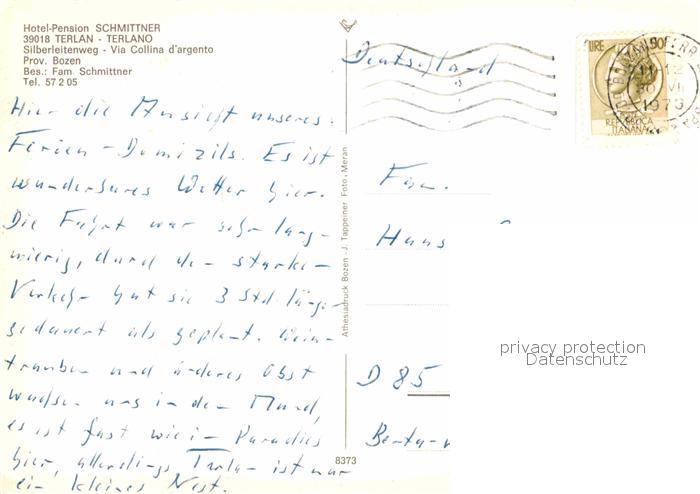 Hotel-Pension SCHMITTNER
39018 TERLAN - TERLANO
Silberleitenweg - Via Collina d'argento
Prov. Bozen
Bes.: Fam. Schmittner
Tel. 57 2 05
Hier die Ansicht unseres
Ferien-Domizils. Es ist
wunderbares Wetter hier.
Die Fahrt war sehr lang-
wierig, durch den starken
Verkehr hat sie 3 Std länger
gedauert als geplant. Wein-
trauben und anderes Obst
wachsen uns in den Mund,
es ist fast wie im Paradies
hier, allerdings Terlan ist nur
ein kleines Nest.
8373
Athesiadruck Bozen - J. Tappeiner Foto, Meran
Deutschland
LIRE 90
REPUBBLICA
ITALIANA
1979
Fam.
Hans
D 85
privacy protection
Datenschutz